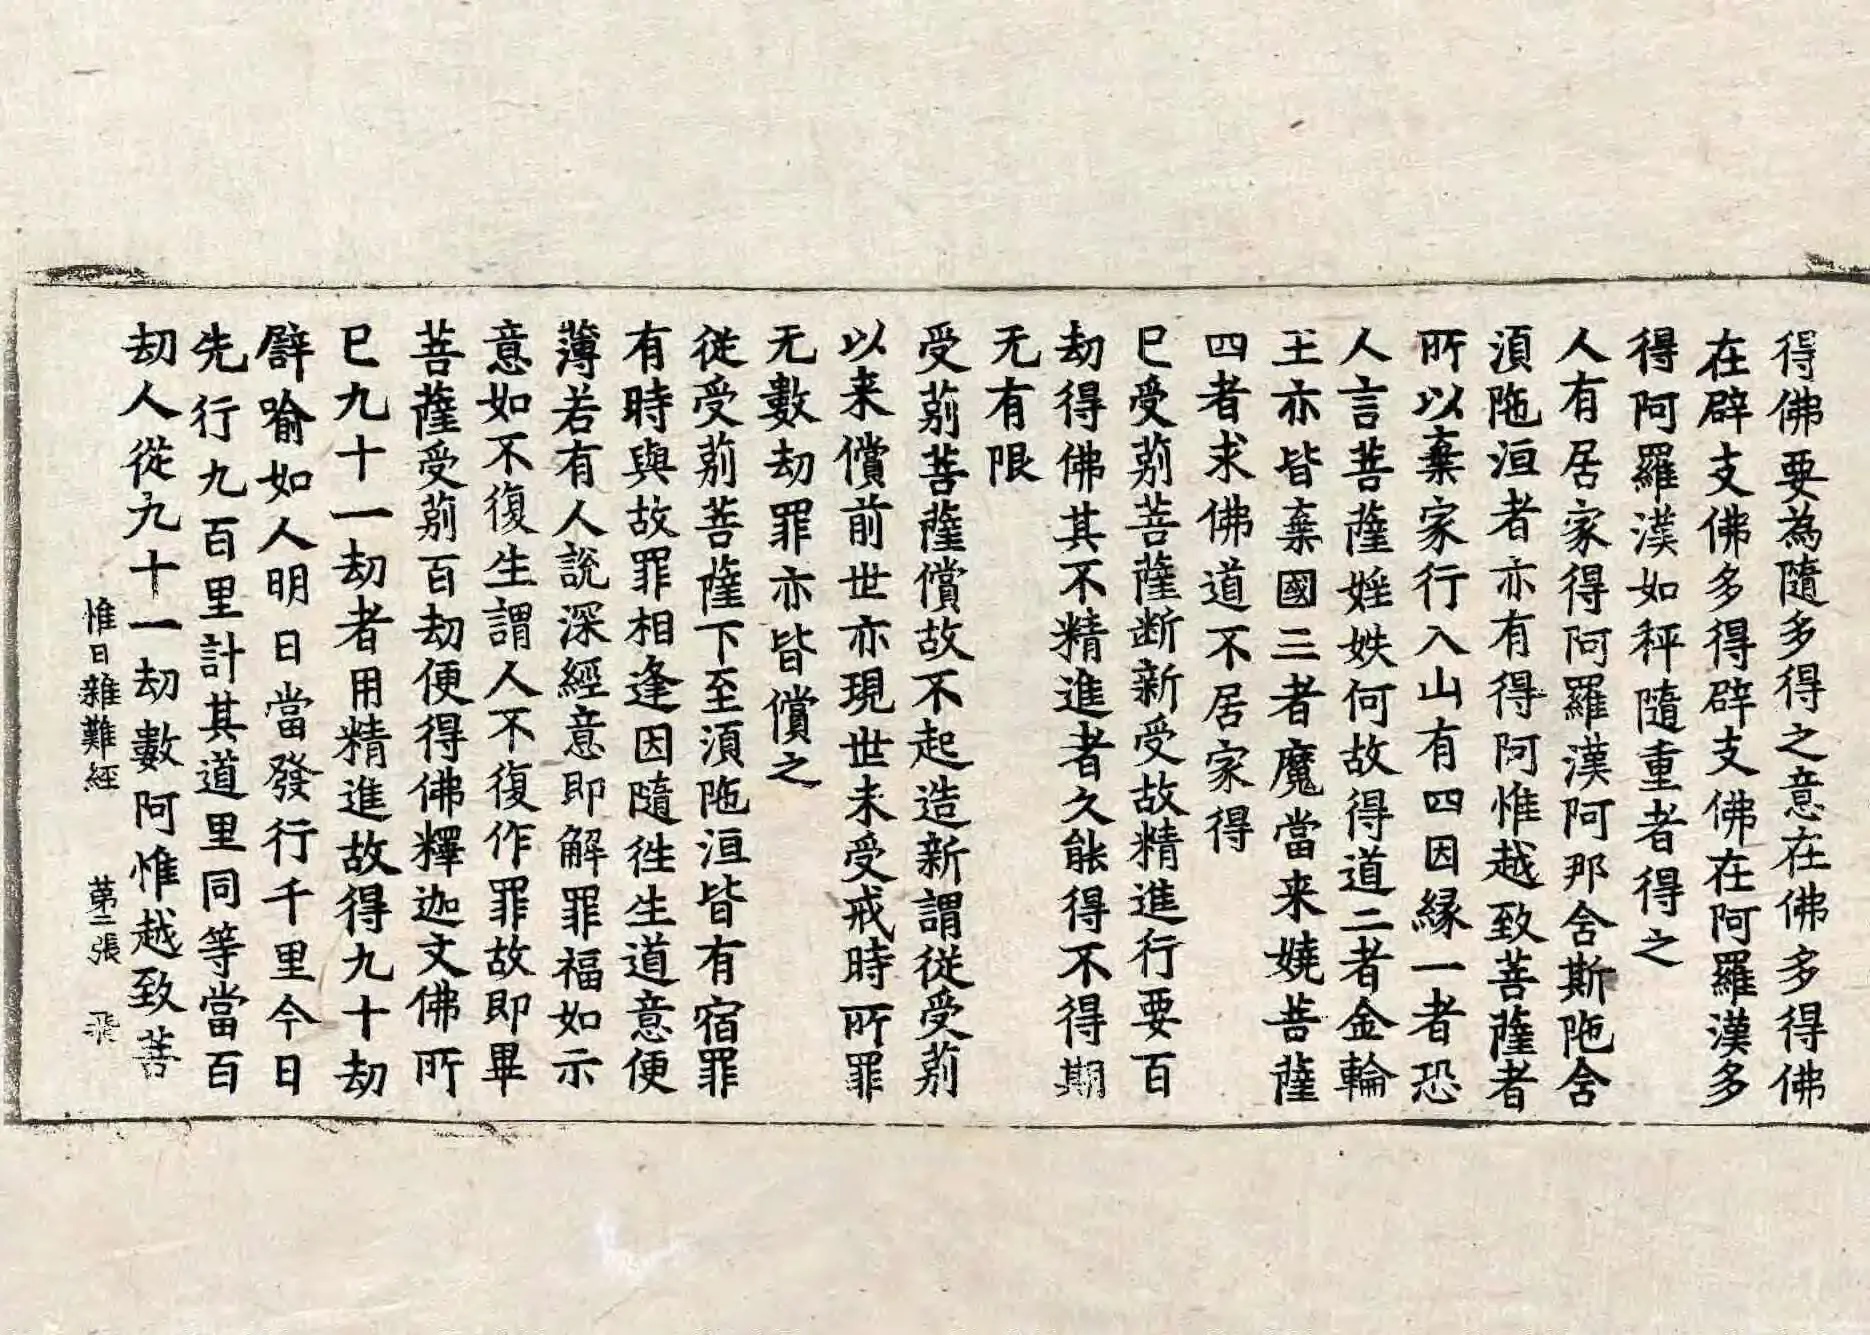 得佛要為隨多得之意在佛多得佛
在辟支佛多得辟支佛在阿羅漢多
得阿羅漢如秤隨重者得之
人有居家得阿羅漢阿那舍斯陁舍
湏陁洹者亦有得阿惟越致菩薩者
所以棄家行入山有四因縁一者恐
人言菩薩婬妷何故得道二者金輪
王亦皆棄國三者魔當来嬈菩薩
四者求佛道不居家得
无有限
劫得佛其不精進者久能得不得期
已受莂菩薩断新受故精進行要百
受莂菩薩償故不起造新謂従受莂
以来償前世亦現世未受戒時所罪
无數劫罪亦皆償之
従受莂菩薩下至湏陁洹皆有宿罪
有時與故罪相逢因隨徃生道意便
薄若有人説深經意即解罪福如示
意如不復生謂人不復作罪故即畢
菩薩受莂百劫便得佛釋迦文佛所
已九十一劫者用精進故得九十劫
譬喻如人明日當發行千里今日
先行九百里計其道里同等當百
劫人從九十一劫數阿惟越致菩
惟日雜難經 第二張 飛